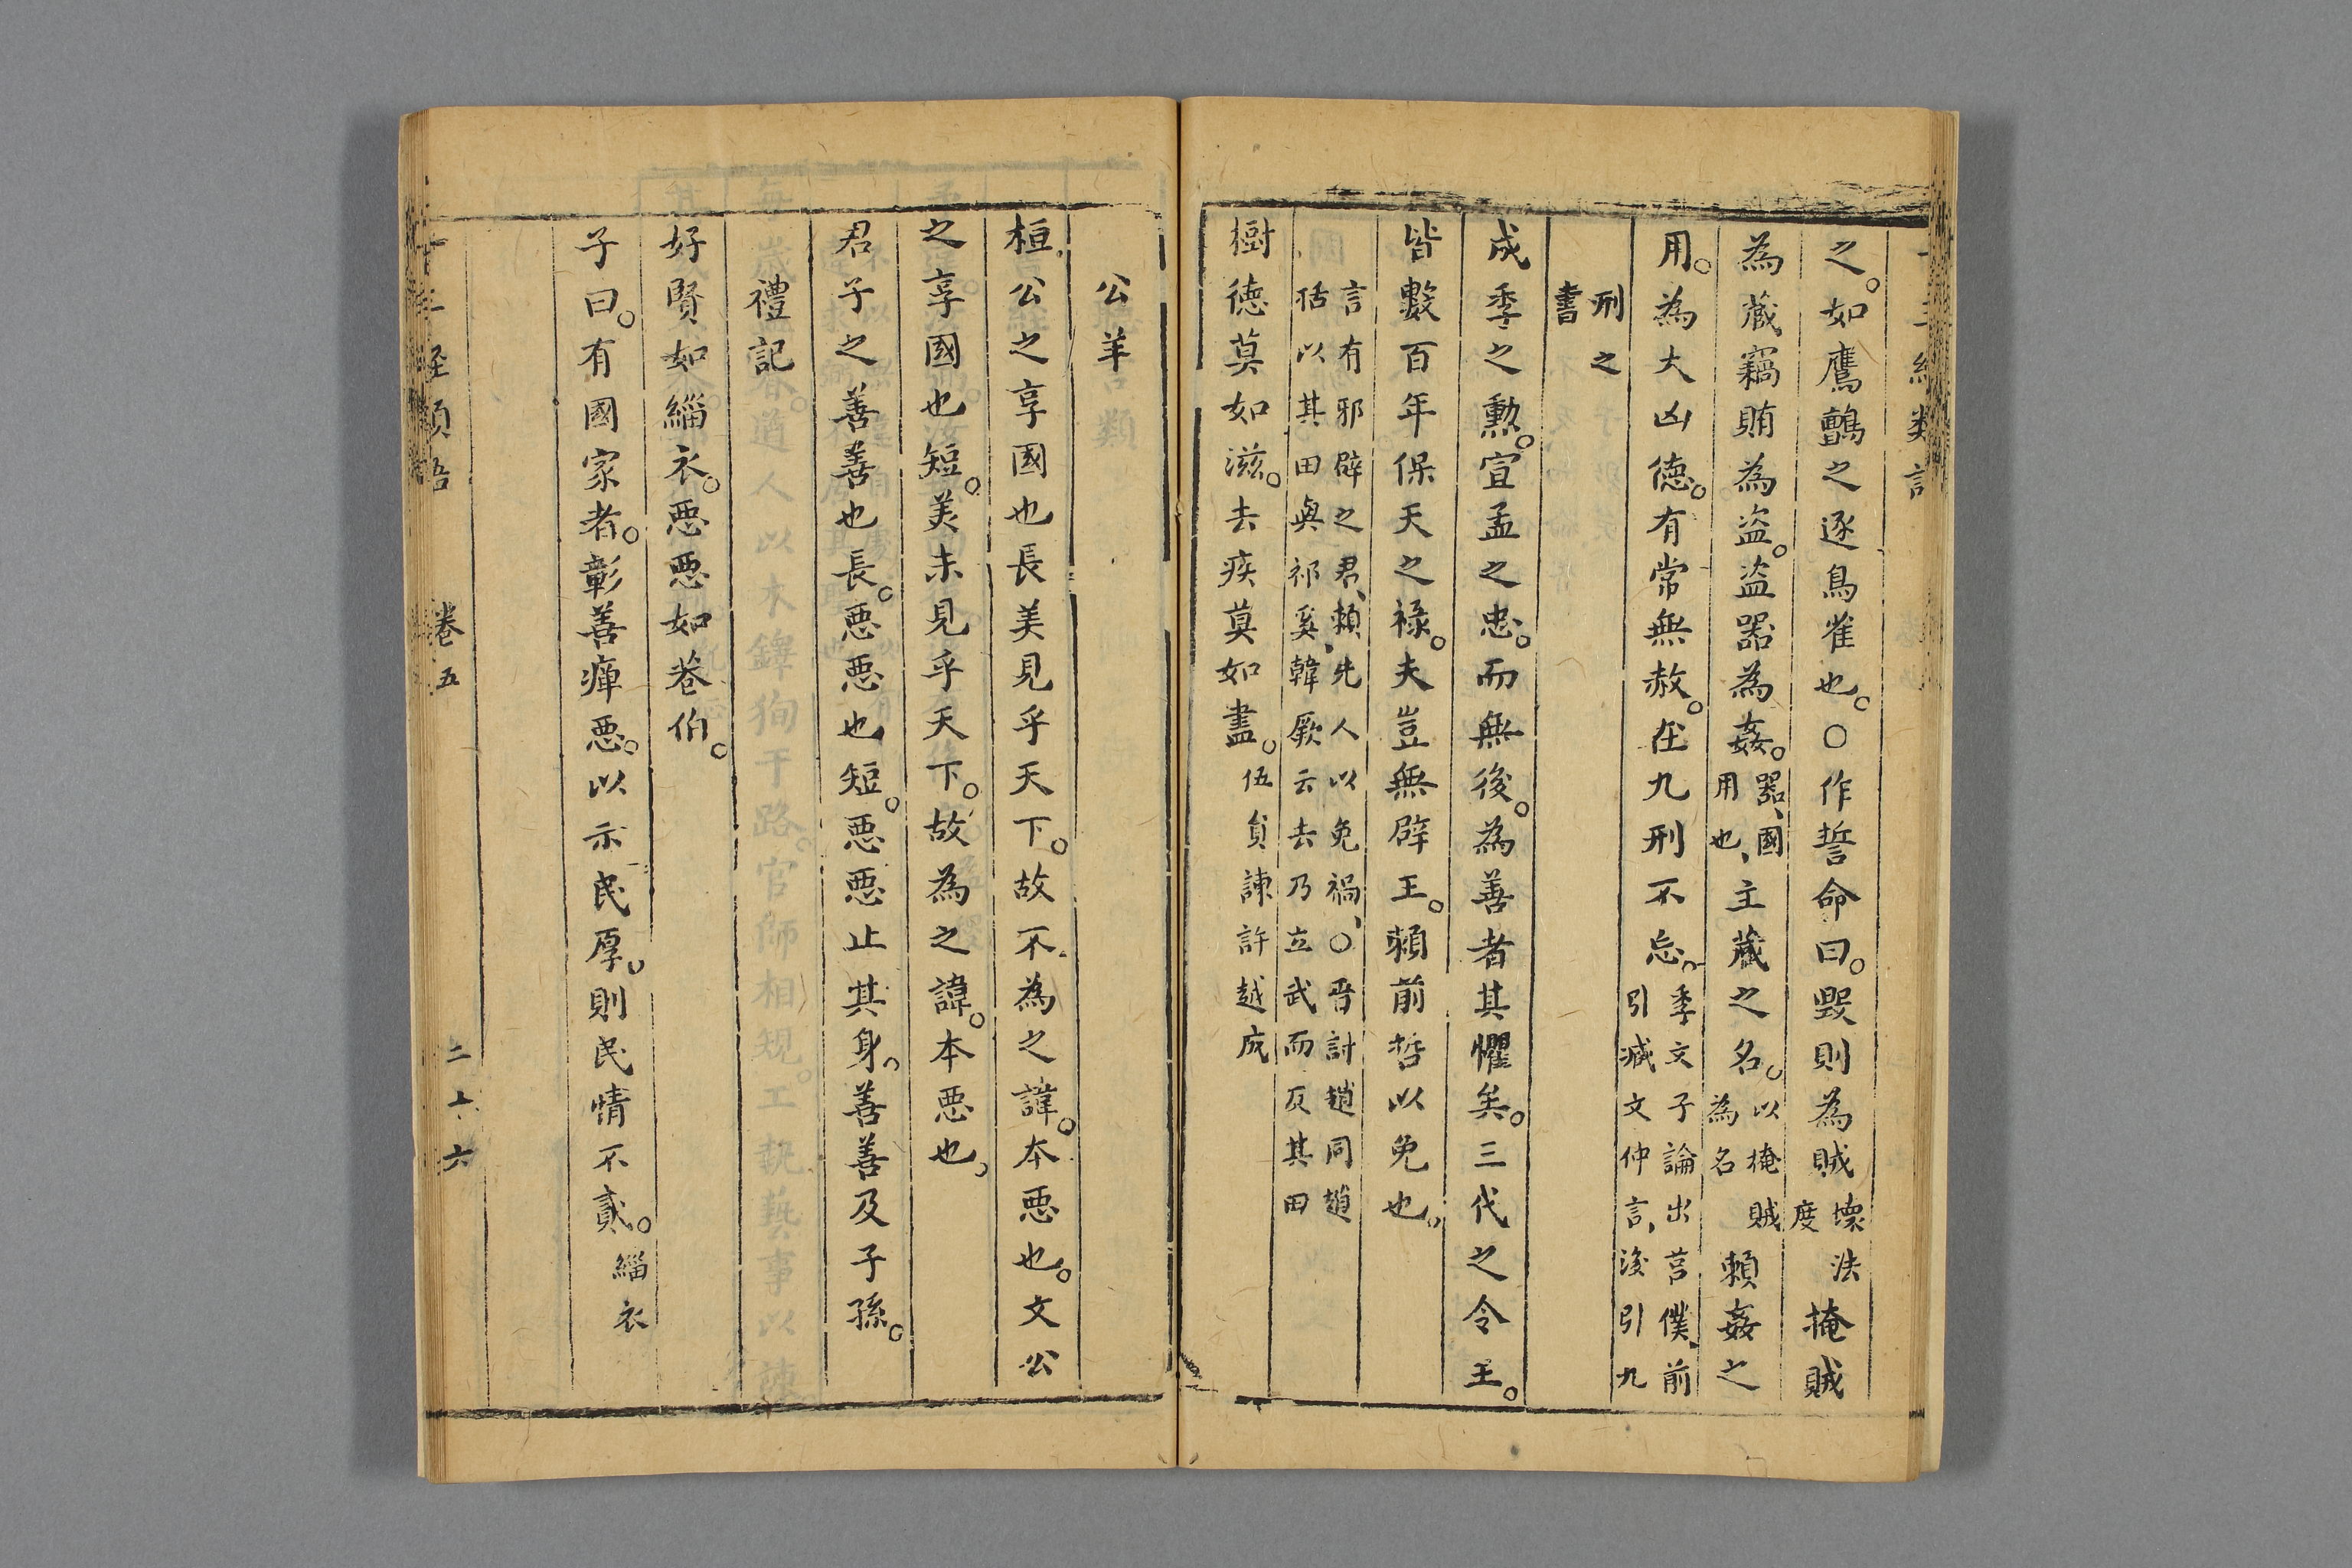 之。如鷹鸇之逐鳥雀也。○作誓命曰。毀則為賊壞法度掩賊
為藏、竊賄為盗。盗器為姦。器、國用也、主藏之名。以掩賊為名頼姦之
用。為大凶徳。有常無赦。在九刑不忘。季文子論出莒僕、前引減文仲言、後引九
刑之書
成季之勲。宣孟之忠。而無後。為善者其懼矣。三代之令王。
皆數百年保天之祿。夫豈無辟王。頼前哲以免也。
言有邪辟之君、頼先人以免禍、○晋討趙同趙
括以其田與祁奚、韓厥云去乃立武而反其田
樹徳莫如滋。去疾莫如盡。伍貟諫許越成
公羊
桓公之享國也長美見乎天下。故不為之諱。本悪也。文公
之享國也短。美未見乎天下。故為之諱。本悪也。
君子之善善也長。悪悪也短。悪悪止其身。善善及子孫。
禮記
好賢如緇衣。悪悪如巷伯。
子曰。有國家者。彰善癉悪。以示民厚。則民情不貳。緇衣
十三経類語 卷五 二十六